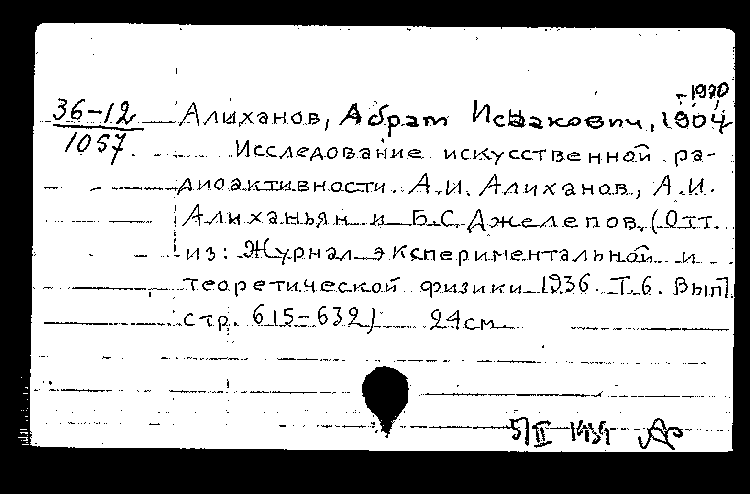 -1970
36-12 Алиханов, Абрам Исаакович, 1904
1057. Исследование искусственной ра-
диоактивности. А.И. Алиханов, А.И.
Алиханьян и Б.С. Джелепов. (Отт.
из: Журнал экспериментальной и
теоретической физики 1936. Т.6. Вып
стр. 615-632) 24см.
5/II 1939